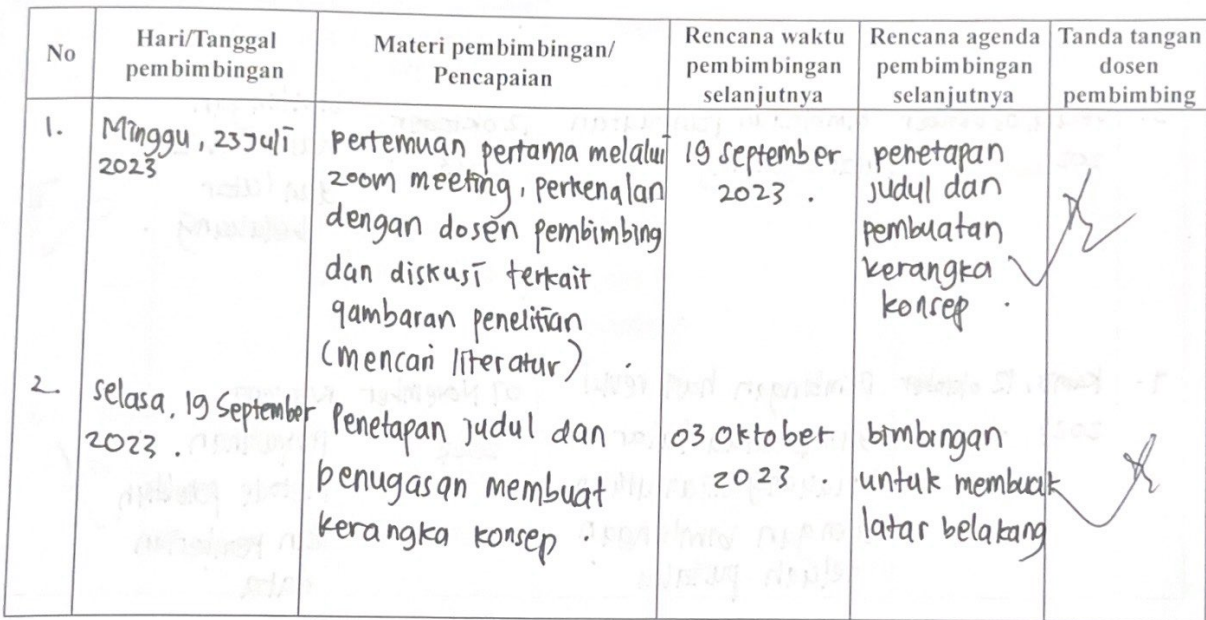 No
Hari/Tanggal
pembimbingan
Materi pembimbingan/
Pencapaian
Rencana waktu
pembimbingan
selanjutnya
Rencana agenda
pembimbingan
selanjutnya
Tanda tangan
dosen
pembimbing
1.
Minggu, 23 Juli
2023
pertemuan pertama melalui
zoom meeting, perkenalan
dengan dosen pembimbing
dan diskusi terkait
gambaran penelitian
(mencari literatur).
19 september
2023.
penetapan
judul dan
pembuatan
kerangka
konsep.
2.
selasa, 19 September
2023.
Penetapan judul dan
penugasan membuat
kerangka konsep.
03 oktober
2023.
bimbingan
untuk membuat
latar belakang